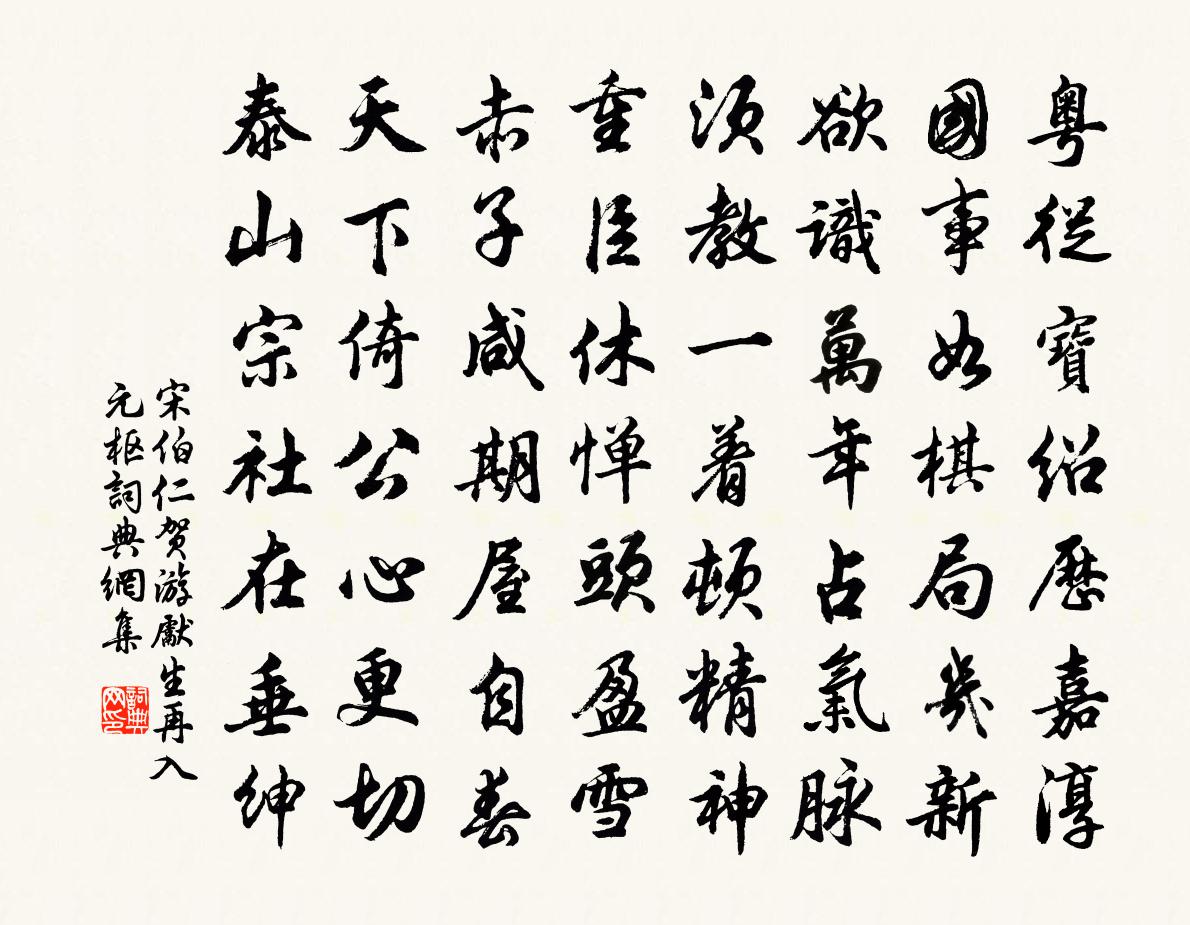 粤從寶紹歷嘉淳
國事如棋局幾新
欲識萬年占氣脉
須教一着頓精神
重臣休惮頭盈雪
赤子咸期屋自春
天下倚公心更切
泰山宗社在垂紳
宋伯仁贺游獻生再入
元枢詞典網集
詞典网印